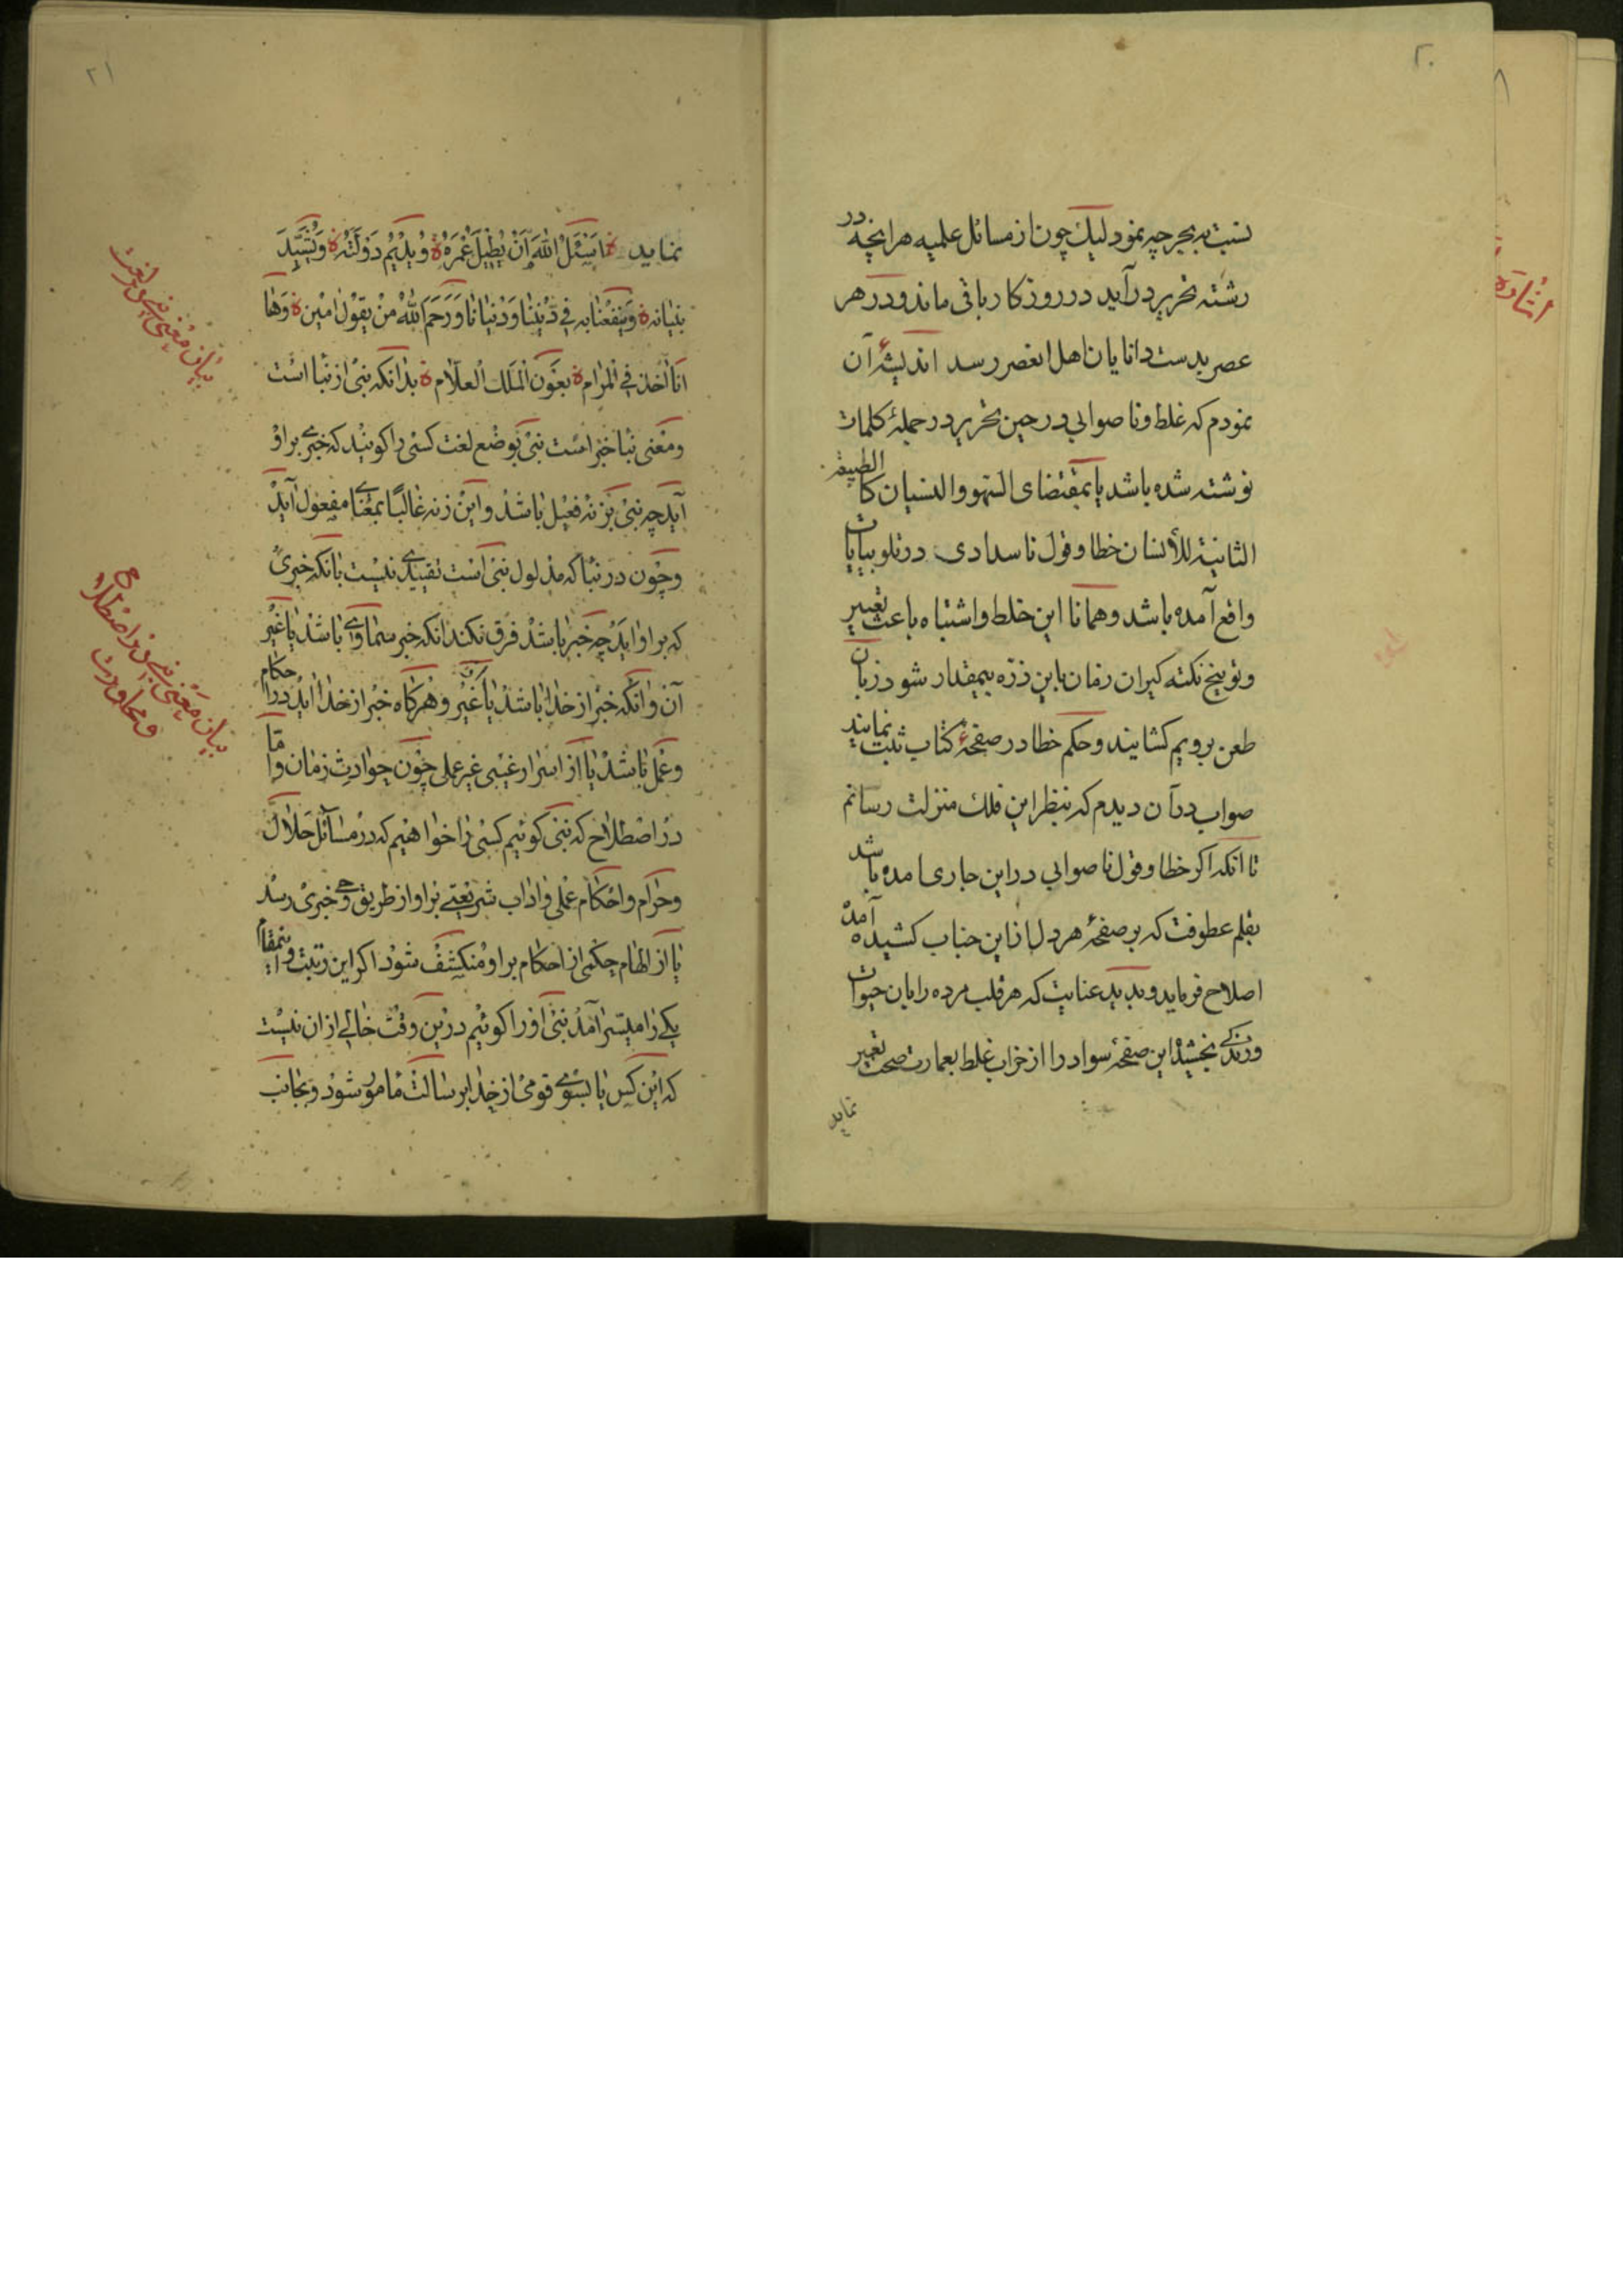 ۲۰
نسبت به بحر چه نمود لیك چون از مسائل علمیه هر آنچه در
رشته تحریر در آید در روزکار باقی ماند و در هر
عصر بدست دانایان اهل العصر رسد اندیشهٔ آن
نمودم که غلط و ناصوابی در حین تحریر در جملهٔ کلمات
نوشته شده باشد یا بمقتضای السهو والنسیان کالطبیعة
الثانیة للأنسان خطا و قول ناسدادی در تلو بیانات
واقع آمده باشد و همانا این خلط و اشتباه باعث تعییر
و توبیخ نکته کیران زمان باین ذرّه بیمقدار شود زبان
طعن برویم کشایند و حکم خطا در صفحهٔ کتاب ثبت نمایند
صواب در آن دیدم که بنظر این فلك منزلت رسانم
تا انکه اکر خطا و قول ناصوابی در این جاری امده باشد
بقلم عطوفت که بر صفحهٔ هر دل از این جناب کشیده آمده
اصلاح فرماید و بدید عنایت که هر قلب مرده را بان حیوات
و زندکی بخشید این صفحهٔ سواد را از خراب غلط بعمارت صحت تغییر
نماید
۲۱
نماید فاسئل الله ان یطیل عمره و یدیم دولته و یشیّد
بنیانه و ینفعنا به فی دیننا و دنیانا و رحم الله من یقول امین و ها
انا أخذ فی المرام بعون الملك العلّام بدانکه نبی از نبأ است
و معنی نبأ خبر است نبی بوضع لغت کسی را کویند که خبری بر او
آید چه نبی بزنه فعیل باشد و این زنه غالبًا بمعنای مفعول آید
و چون در نبأ که مدلول نبی است تقییدی نیست بانکه خبری
که بر او اید چه خبر باشد فرق نکند انکه خبر سماوی باشد یا غیر
آن و انکه خبر از خدا باشد یا غیر و هرکاه خبر از خدا اید در احکام
و عمل باشد یا از اسرار غیبی غیر عملی چون حوادث زمان و اما
در اصطلاح که نبی کوئیم کسی را خواهیم که در مسائل حلال
و حرام و احکام عملی و اداب شریعتی بر او از طریق وحی خبری رسد
یا از الهام حکمی از احکام بر او منکشف شود اکر این رتبت و مقام
یکی را میسر آمد نبی او را کوئیم در این وقت خالی از ان نیست
که این کس یا بسوی قومی از خدا بر سالت مامور شود و بجانب
بیان معنی نبی در لغت
بیان معنی نبی در اصطلاح
اشاره